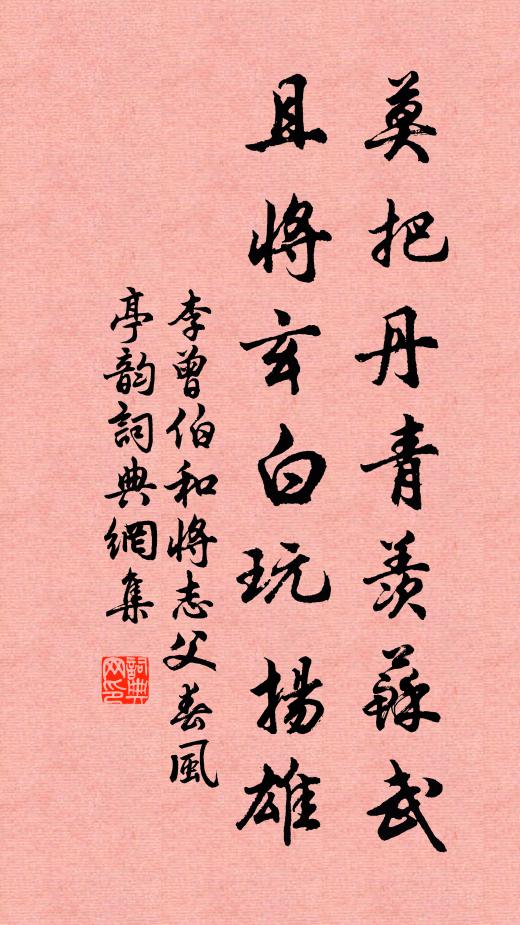 莫把丹青羨蘇武
且將玄白玩揚雄
李曾伯和將志父春風
亭韵詞典網集
詞典網印